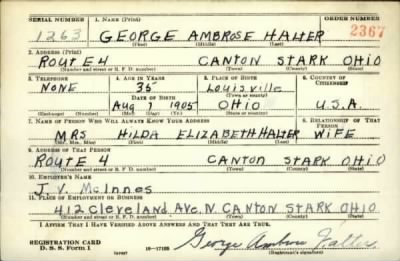 SERIAL NUMBER 1. NAME (Print) ORDER NUMBER
1263 GEORGE AMBROSE HALTER 2367
(First) (Middle) (Last)
2. ADDRESS (Print)
ROUTE 4 CANTON STARK OHIO
(Number and street or R. F. D. number) (Town) (County) (State)
3. TELEPHONE 4. AGE IN YEARS 5. PLACE OF BIRTH 6. COUNTRY OF CITIZENSHIP
NONE 35 Louisville
DATE OF BIRTH (Town or county)
Aug 1 1905 OHIO U.S.A.
(Mo.) (Day) (Yr.) (State or country)
7. NAME OF PERSON WHO WILL ALWAYS KNOW YOUR ADDRESS 8. RELATIONSHIP OF THAT PERSON
MRS HILDA ELIZABETH HALTER WIFE
(Mr., Mrs., Miss) (First) (Middle) (Last)
9. ADDRESS OF THAT PERSON
ROUTE 4 CANTON STARK OHIO
(Number and street or R. F. D. number) (Town) (County) (State)
10. EMPLOYER'S NAME
J. V. McInnes
11. PLACE OF EMPLOYMENT OR BUSINESS
412 Cleveland Ave. N. CANTON STARK OHIO
(Number and street or R. F. D. number) (Town) (County) (State)
I AFFIRM THAT I HAVE VERIFIED ABOVE ANSWERS AND THAT THEY ARE TRUE.
REGISTRATION CARD George Ambrose Halter
D. S. S. Form 1 (over) 16—17105 (Registrant's signature)